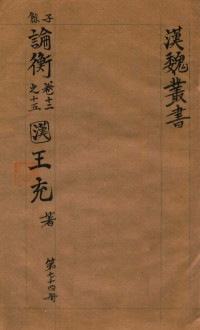 漢魏叢書
子餘
論衡 卷十二之十五 漢 王充 著
第七十四册